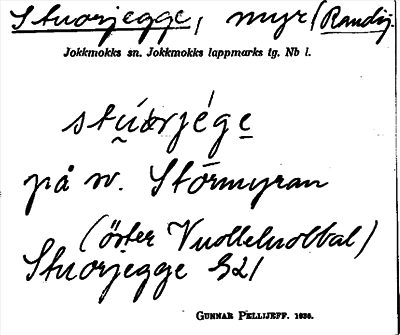 Stuorjegge, myr (Randij.
Jokkmokks sn. Jokkmokks lappmarks tg. Nb l.
stúorjége
på sv. Stōrmyran
(öster Vuolleluobbal)
Stuorjegge
GUNNAR PELLIJEFF. 1936.